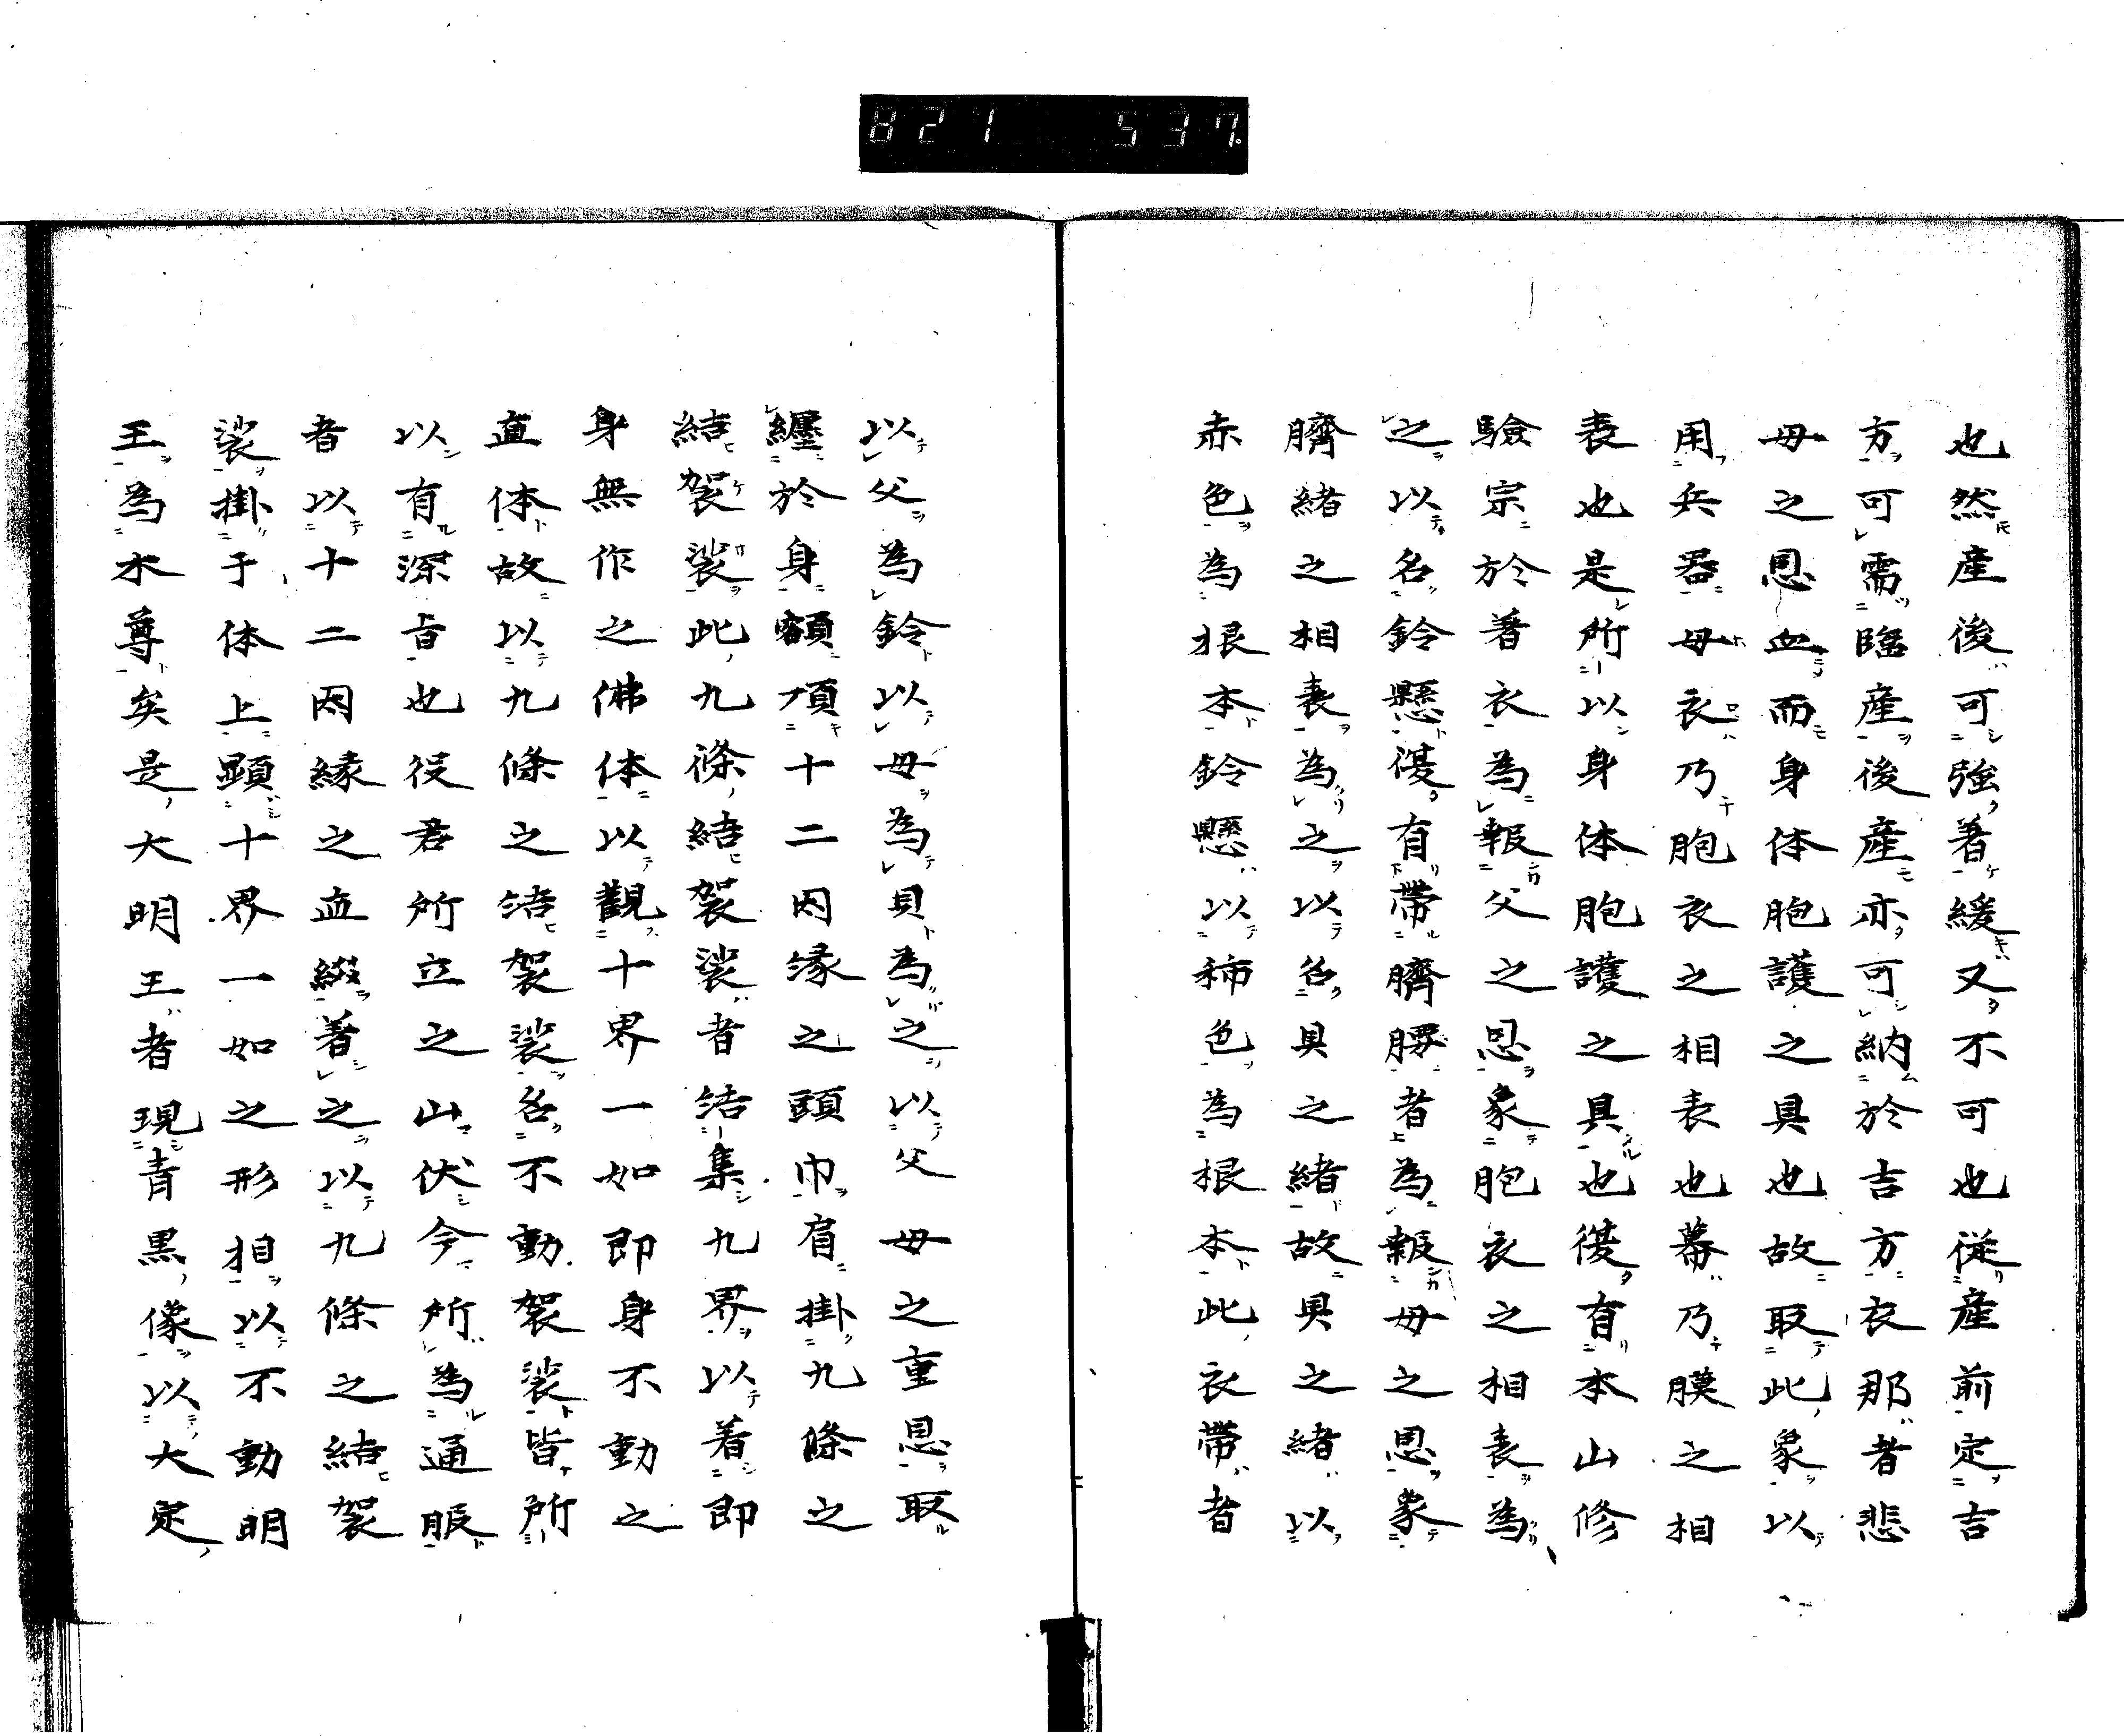 821 537
也然産後可強著緩又不可也従産前定吉
方可需臨産後産亦可納於吉方衣那者悲
母之恩血而身体胞護之具也故取此象以
用兵器母衣乃胞衣之相表也幕乃膜之相
表也是所以身体胞護之具也復有本山修
驗宗於著衣為報父之恩象胞衣之相表為
之以名鈴懸復有帶臍腰者為報母之恩象
臍緒之相表為之以名具之緒故具之緒以
赤色為根本鈴懸以柿色為根本此衣帶者
以父為鈴以母為貝為之以父母之重恩取
纒於身額項十二因縁之頭巾肩掛九條之
結袈裟此九條結袈裟者結集九界以着即
身無作之佛体以觀十界一如即身不動之
直体故以九條之結袈裟名不動袈裟皆所
以有深旨也役君所立之山伏今所為通服
者以十二因縁之血綴着之以九條之結袈
裟掛于体上顕十界一如之形相以不動明
王為本尊矣是大明王者現青黒像以大定